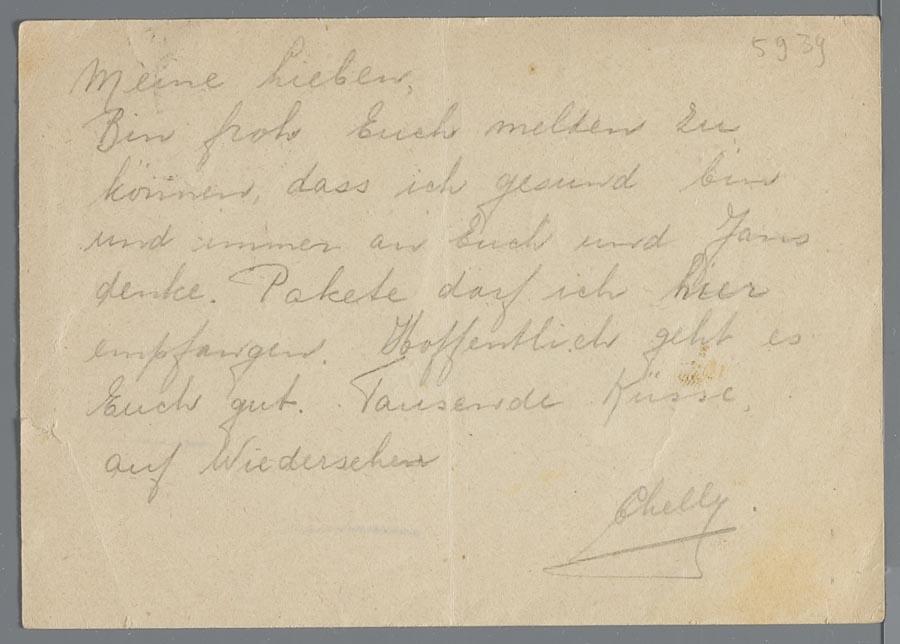 5939
Meine Lieben,
Bin froh Euch melden zu
können, dass ich gesund bin
und immer an Euch und Jans
denke. Pakete darf ich hier
empfangen. Hoffentlich geht es
Euch gut. Tausende Küsse,
auf Wiedersehen
Chelly.